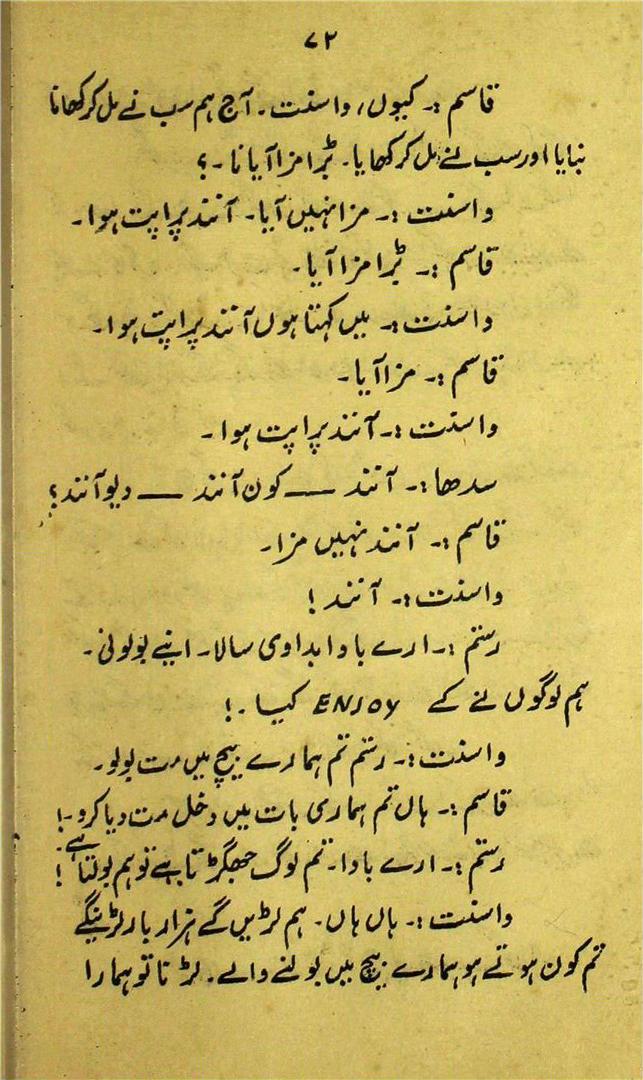 ۷۲
قاسم :۔ کیوں، واسنت۔ آج ہم سب نے مل کر کھانا
بنایا اور سب نے مل کر کھایا۔ بڑا مزا آیا نا ۔؟
واسنت :۔ مزا نہیں آیا۔ آنند پراپت ہوا۔
قاسم :۔ بڑا مزا آیا۔
واسنت :۔ میں کہتا ہوں آنند پراپت ہوا۔
قاسم :۔ مزا آیا۔
واسنت :۔ آنند پراپت ہوا۔
سدھا :۔ آنند — کون آنند — دیو آنند؟
قاسم :۔ آنند نہیں مزا۔
واسنت :۔ آنند !
رستم :۔ ارے باوا بداوی سالا۔ اپنے بولونی۔
ہم لوگوں نے کے ENJOY کیا ۔!
واسنت :۔ رستم تم ہمارے بیچ میں مت بولو۔
قاسم :۔ ہاں تم ہماری بات میں دخل مت دیا کرو ۔!
رستم :۔ ارے باوا۔ تم لوگ جھگڑتا ہے تو ہم بولتا ہے !
واسنت :۔ ہاں ہاں۔ ہم لڑیں گے ہزار بار لڑینگے
تم کون ہوتے ہو ہمارے بیچ میں بولنے والے۔ لڑنا تو ہمارا